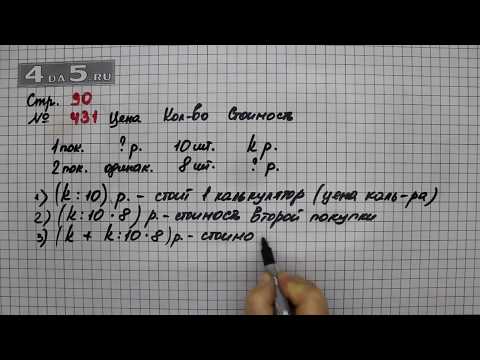 4DA5.RU
Стр. 90
№ 431 Цена Кол-во Стоимость
1 пок. ? р. 10 шт. k р.
2 пок. одинак. 8 шт. ? р.
1) (k : 10) р. – стоит 1 калькулятор (цена каль-ра)
2) (k : 10 · 8) р. – стоимость второй покупки
3) (k + k : 10 · 8) р. – стоимо